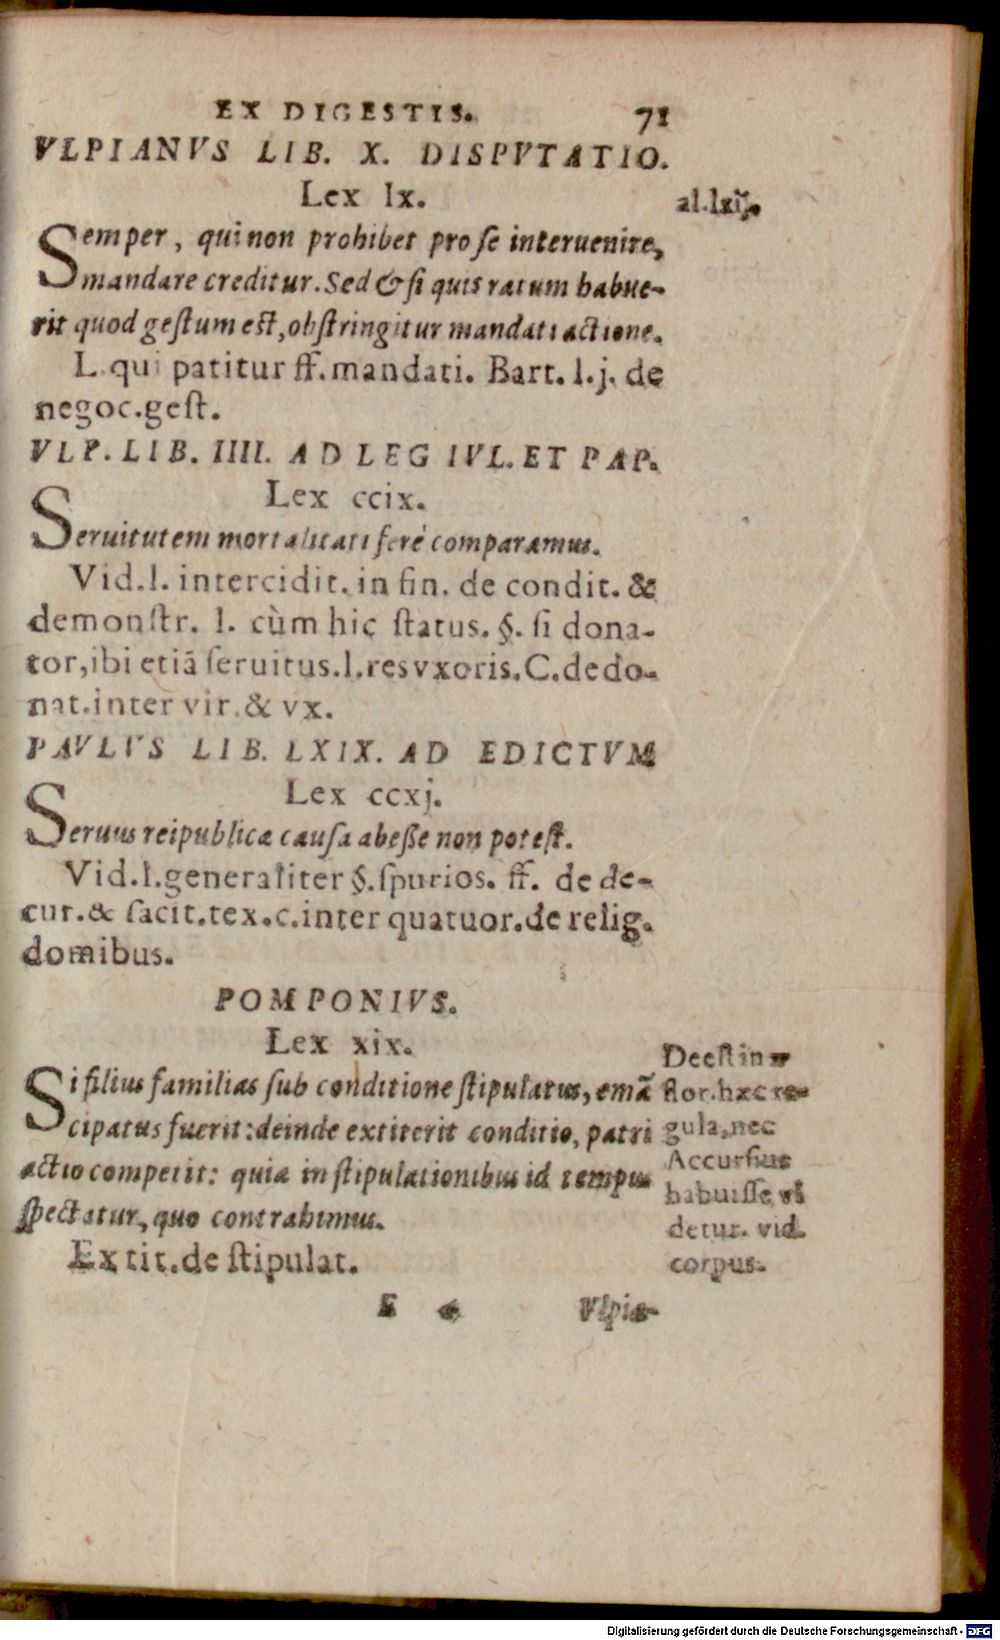 EX DIGESTIS. 71
VLPIANVS LIB. X. DISPVTATIO.
Lex lx.
al.lxij.
Semper, qui non prohibet pro se interuenire,
mandare creditur. Sed & si quis ratum habue-
rit quod gestum est, obstringitur mandati actione.
L. qui patitur ff. mandati. Bart. l.j. de
negoc. gest.
VLP. LIB. IIII. AD LEG IVL. ET PAP.
Lex ccix.
Seruitutem mortalitati ferè comparamus.
Vid. l. intercidit. in fin. de condit. &
demonstr. l. cùm hic status. §. si dona-
tor, ibi etiā seruitus. l. res vxoris. C. de do-
nat. inter vir. & vx.
PAVLVS LIB. LXIX. AD EDICTVM
Lex ccxj.
Seruus reipublicæ causa abesse non potest.
Vid. l. generaliter §. spurios. ff. de de-
cur. & facit. tex. c. inter quatuor. de relig.
domibus.
POMPONIVS.
Lex xix.
Si filius familias sub conditione stipulatus, emā
cipatus fuerit: deinde extiterit conditio, patri
actio competit: quia in stipulationibus id tempus
spectatur, quo contrahimus.
Extit. de stipulat.
Deest in
flor. hæc re-
gula, nec
Accursius
habuisse vi
detur. vid.
corpus.
E Vlpia-
Digitalisierung gefördert durch die Deutsche Forschungsgemeinschaft - DFG